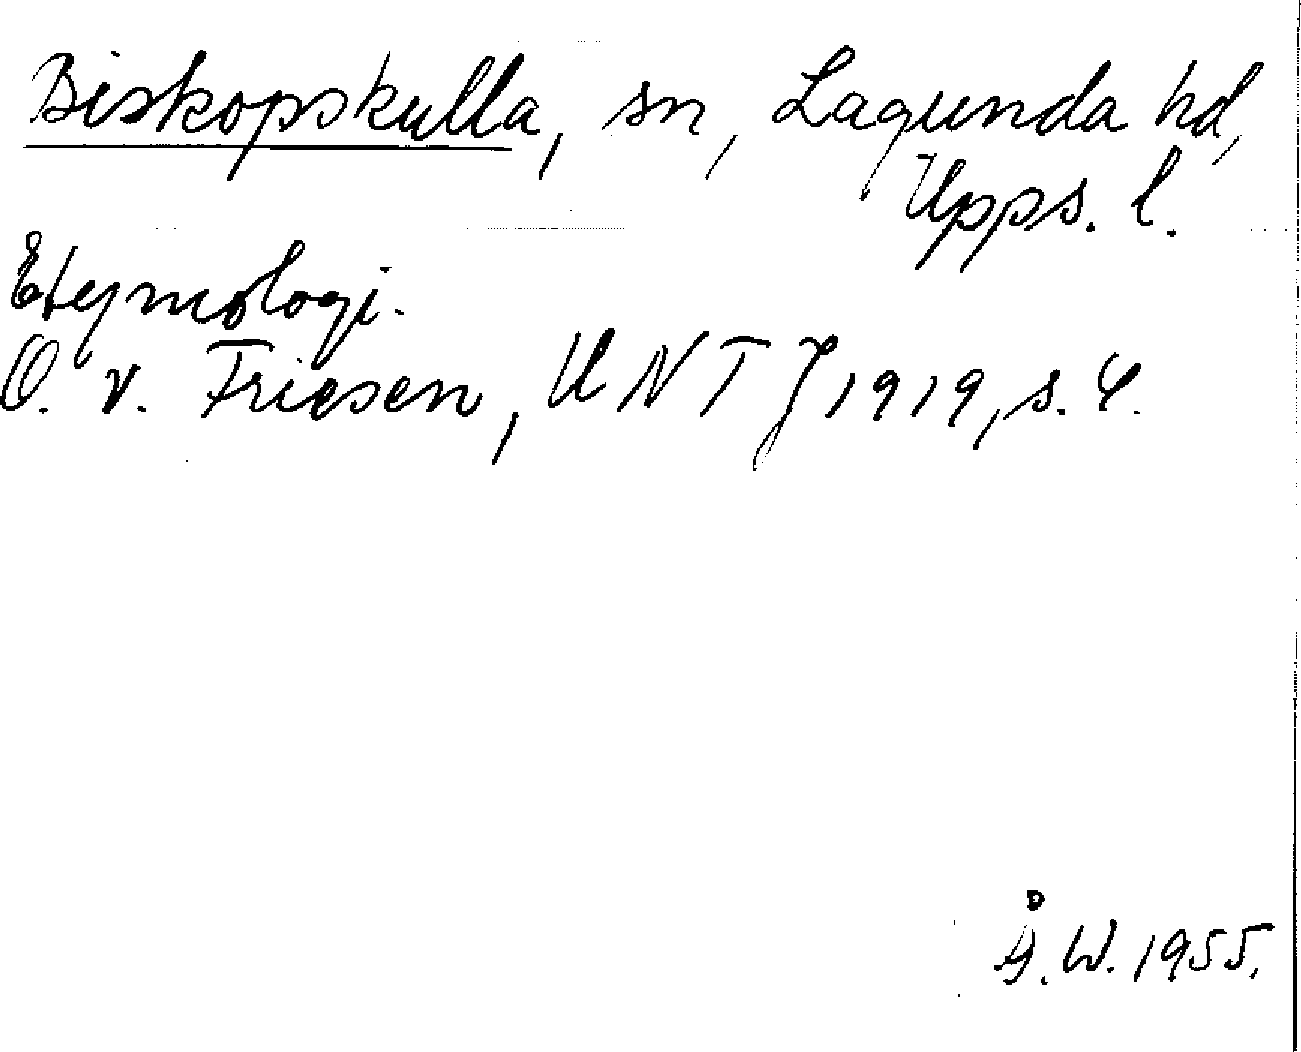 Biskopskulla, sn, Lagunda hd,
Upps. l.
Etymologi.
O. v. Friesen, UNT J 1919, s. 4.
Å. W. 1955.